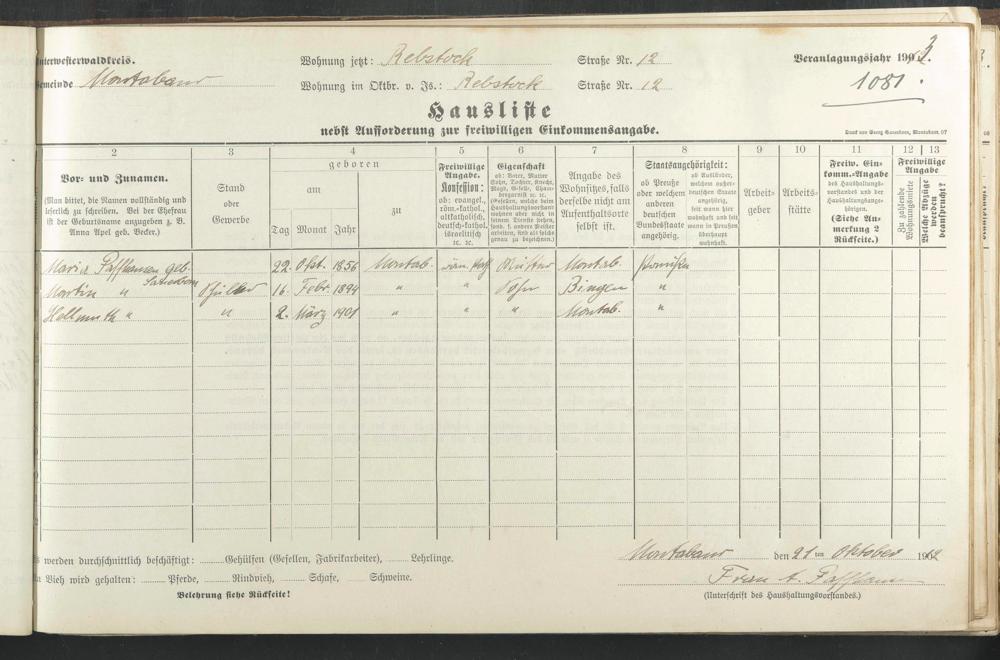 nterwesterwaldkreis. Wohnung jetzt: Rebstock Straße Nr. 12 Veranlagungsjahr 19 3.
emeinde Montabaur Wohnung im Oktbr. v. Js.: Rebstock Straße Nr. 12 1081.
Hausliste
nebst Aufforderung zur freiwilligen Einkommensangabe.
Druck von Georg Sauerborn, Montabaur. 07
2 3 4 5 6 7 8 9 10 11 12 13
Vor- und Zunamen.
(Man bittet, die Namen vollständig und
leserlich zu schreiben. Bei der Ehefrau
ist der Geburtsname anzugeben z. B.
Anna Apel geb. Becker.)
Stand
oder
Gewerbe
geboren
am
zu
Tag Monat Jahr
Freiwillige
Angabe.
Konfession:
ob: evangel.,
röm.-kathol.,
altkatholisch,
deutsch-kathol.
israelitisch
ꝛc. ꝛc.
Eigenschaft
ob: Vater, Mutter
Sohn, Tochter, Knecht,
Magd, Geselle,
(Gesellen, welche beim
Haushaltungsvorstand
wohnen aber nicht in
seinem Dienste stehen,
sond. f. andere Meister
arbeiten, sind als solche
genau zu bezeichnen.)
Angabe des
Wohnsitzes, falls
derselbe nicht am
Aufenthaltsorte
selbst ist.
Staatsangehörigkeit:
ob Preuße
oder welchem
anderen
deutschen
Bundesstaate
angehörig.
ob Ausländer,
welchem außer-
deutschen Staate
angehörig,
seit wann hier
wohnhaft und seit
wann in Preußen
überhaupt
wohnhaft.
Arbeit-
geber
Arbeits-
stätte
Freiw. Ein-
komm.-Angabe
des Haushaltungs-
vorstandes und der
Haushaltungsange-
hörigen.
(Siehe An-
merkung 2
Rückseite.)
Freiwillige
Angabe
Zu zahlende
Wohnungsmiete
Welche Abzüge
werden
beansprucht?
Maria Paffhausen geb. 22. Okt. 1856 Montab. röm. kath Mutter Montab. Preußen
Sauerborn
Martin " Schüler 16. Febr. 1894 " " Sohn Bingen "
Hellmuth " " 2. März 1901 " " " Montab. "
s werden durchschnittlich beschäftigt: Gehülfen (Gesellen, Fabrikarbeiter), Lehrlinge.
n Vieh wird gehalten: Pferde, Rindvieh, Schafe, Schweine.
Belehrung siehe Rückseite!
Montabaur den 21 ten Oktober 1912
Frau A. Paffhausen
(Unterschrift des Haushaltungsvorstandes.)